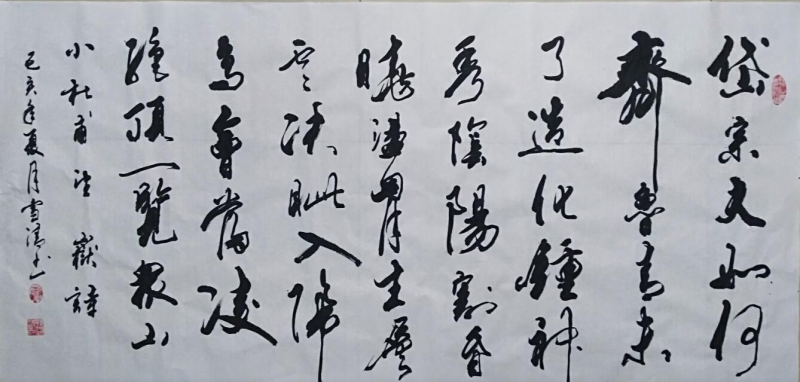 岱宗夫如何
齊魯青未
了造化鍾神
秀陰陽割昏
曉盪胷生層
雲決眦入歸
鳥會當凌
絕頂一覽眾山
小杜甫望嶽詩
己亥年夏月雪清书